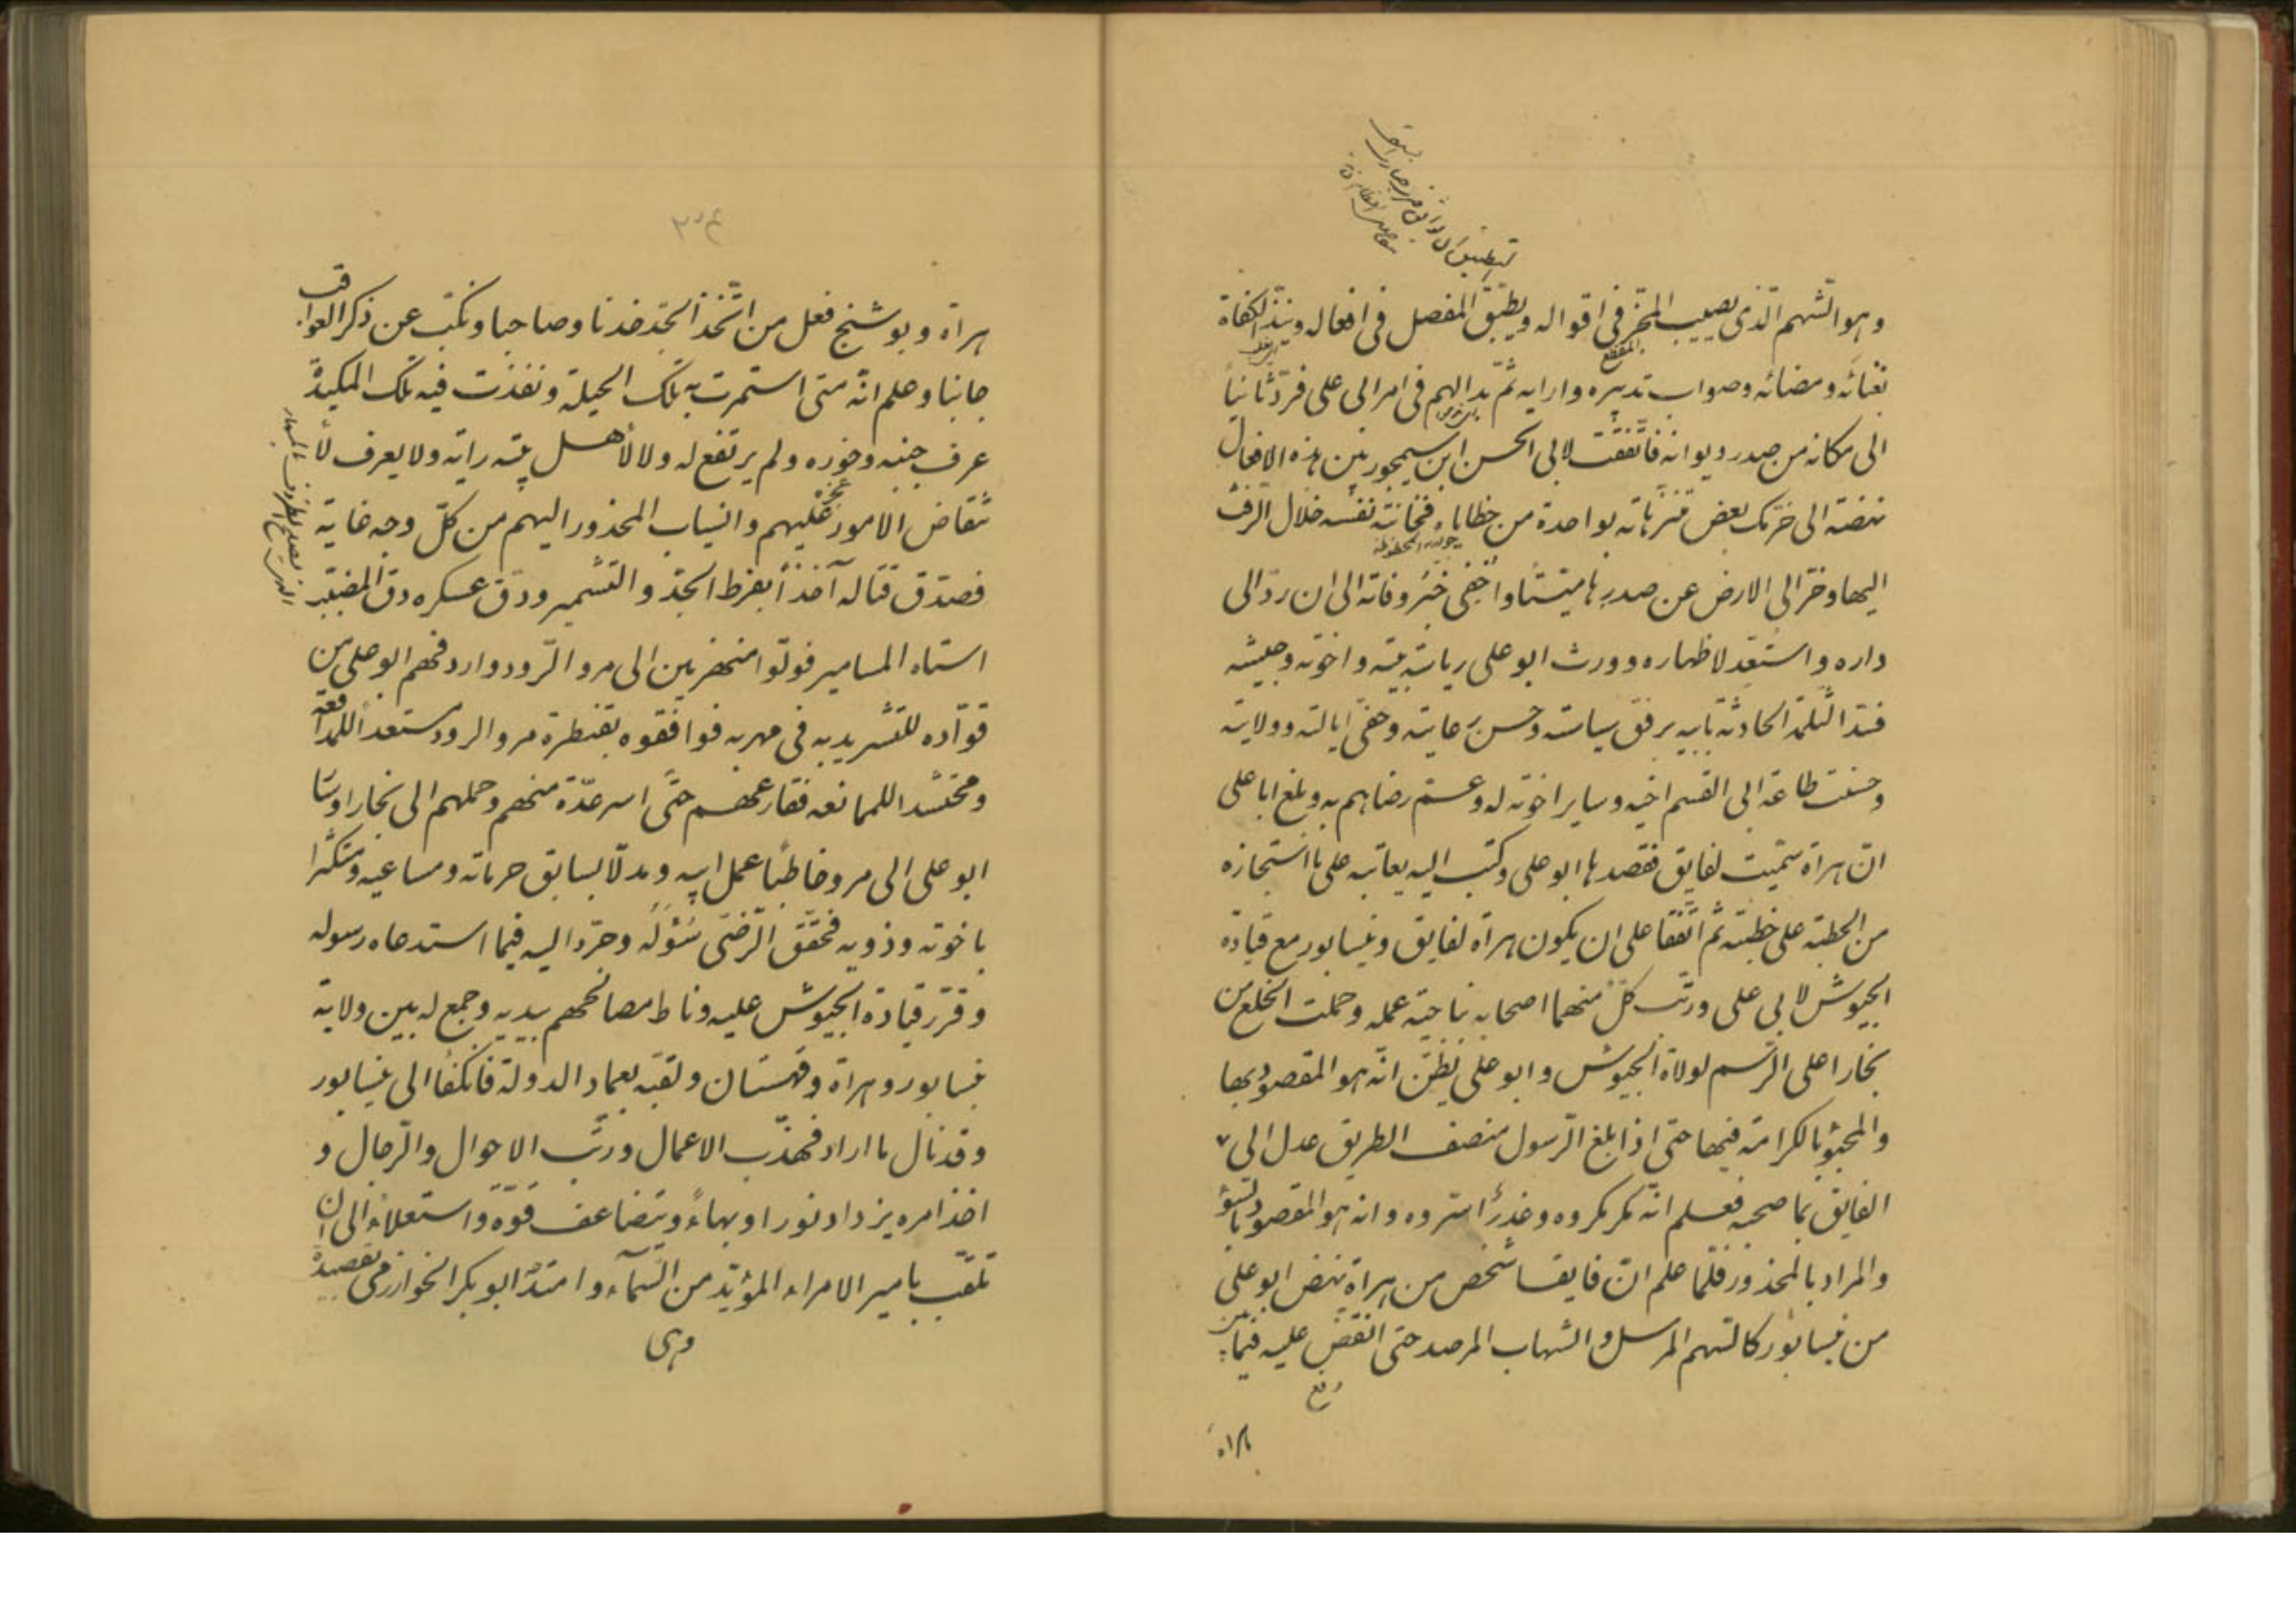 وهو الشهم الّذى يصيب المحزّ فى اقواله ويطبّق المفصل فى افعاله ويبذّ الكفاة
المقطع
بغنائه ومضائه وصواب تدبيره وارايه ثمّ بدا لهم فى امر ابى على فردّ ثانيا
الى مكانه من صدر ديوانه فاتّفقت لابى الحسن ابن سيمجور بين هذه الافعال
نهضته الى خرتك بعض متنزّهاته بواحدة من حظاياه فخانته نفسه خلال الرفث
اليها وخرّ الى الارض عن صدرها ميّتا واخفى خبر وفاته الى ان ردّ الى
داره واستعدّ لاظهاره وورث ابو على رياسة بيته واخوته وجيشه
فسدّ الثلمة الحادثة بابيه برفق سياسته وحسن رعايته وحفىّ ايالته وولايته
وحسنت طاعة ابى القسم اخيه وساير اخوته له وعمّ رضاهم به وبلغ ابا على
انّ هراة سمّيت لفايق فقصدها ابو على وكتب اليه يعاتبه على ما استجازه
من الخطبة على خطبته ثم اتّفقا على ان يكون هراة لفايق ونيسابور مع قيادة
الجيوش لابى على ورتّب كلّ منهما اصحابه بناحية عمله وحملت الخلع من
بخارا على الرّسم لولاة الجيوش وابو على يظنّ انّه هو المقصود بها
والمحبوّ بالكرامة فيها حتى اذا بلغ الرّسول منصف الطريق عدل الى
الفايق بما صحبه فعلم انّه مكر مكروه وغدر أسرّوه وانه هو المقصود بالسّوء
والمراد بالمحذور فلمّا علم انّ فايقا شخص من هراة نهض ابو على
من نيسابور كالسهم المرسل والشهاب المرصد حتى انقضّ عليه فيما بين
هراة
هراة وبوشنج فعل من اتّخذ الجدّ خدنا وصاحبا ونكّب عن ذكر العواقب
جانبا وعلم انّه متى استمرت به تلك الحيلة ونفذت فيه تلك المكيدة
عرف جبنه وخوره ولم يرتفع له ولا لأهل بيته راية ولا يعرف لا
نتقاض الامور عليهم وانسياب المحذور اليهم من كلّ وجه غاية
فصدق قتاله آخذاً بفرط الجدّ والتشمير ودقّ عسكره دقّ المضبّب
استاه المسامير فولّوا منهزمين الى مرو الرّود واردفهم ابو على من
قوّاده للتشريد به فى مهربه فوافقوه بقنطرة مرو الرود مستعداً للمدافعة
ومحتشدا للممانعه فقارعهم حتّى اسر عدّة منهم وحملهم الى بخارا وسا
ابو على الى مرو خاطبًا عمل ابيه ومدلّا بسابق حرماته ومساعيه ومتكثّرا
باخوته وذويه فحقّق الرّضى سؤله وجرّد اليه فيما استدعاه رسوله
وقرّر قيادة الجيوش عليه وناط مصالحهم بيديه وجمع له بين ولاية
نيسابور وهراة وقهستان ولقّبه بعماد الدولة فانكفأ الى نيسابور
وقد نال ما اراد فهذّب الاعمال ورتّب الاحوال والرّجال و
اخذ امره يزداد نورا وبهاءً ويتضاعف قوّة واستعلاءً الى ان
تلقّب بامير الامراء المؤيّد من السّماء وامتدّ ابو بكر الخوارزمى بقصيدة
وهى